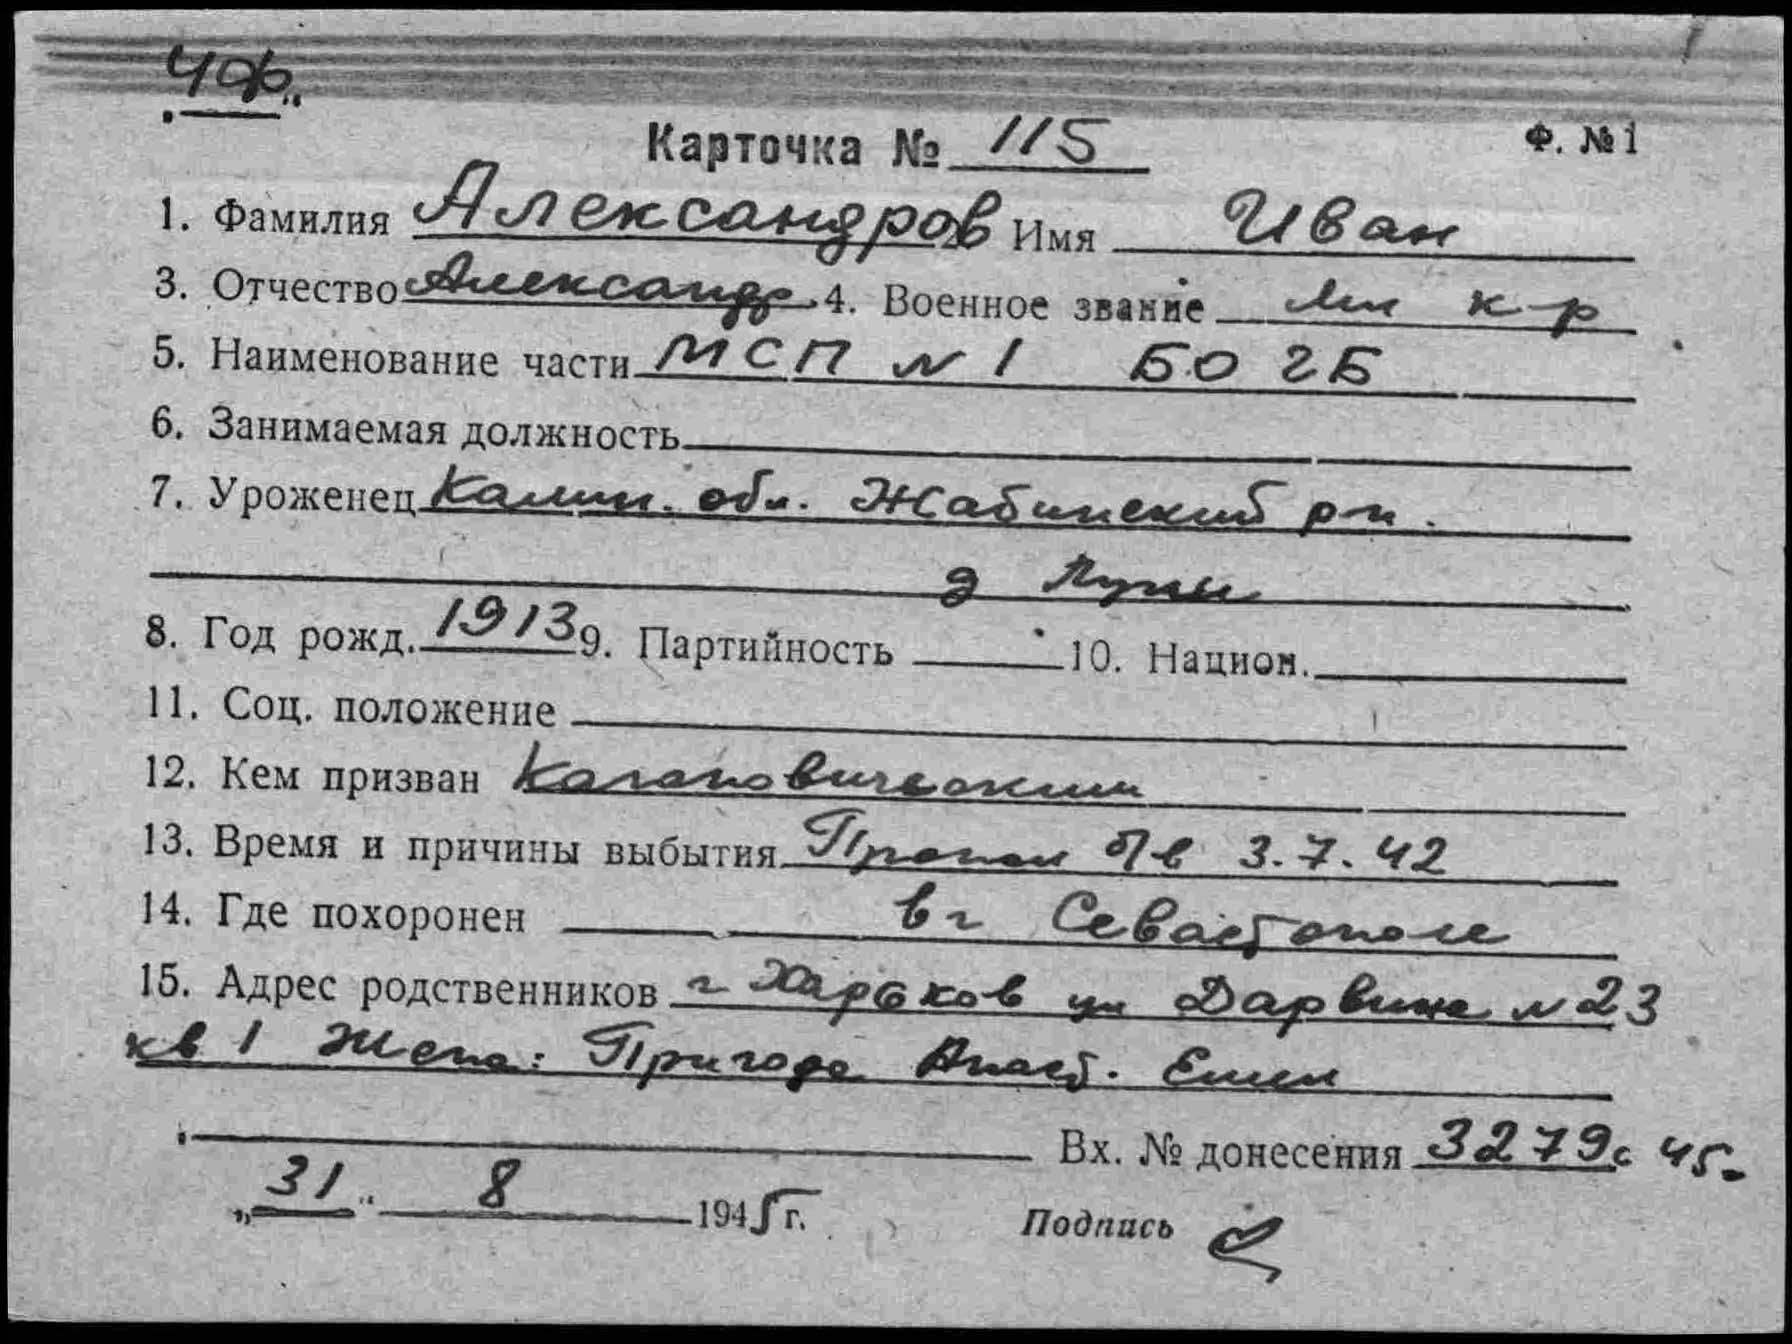 ЧФ
Карточка № 115 Ф. № 1
1. Фамилия Александров Имя Иван
3. Отчество Александр. 4. Военное звание Мл к-р
5. Наименование части МСП N 1 БО ГБ
6. Занимаемая должность
7. Уроженец Калин. обл. Жабинский р-н.
д
8. Год рожд. 1913 9. Партийность 10. Национ.
11. Соц. положение
12. Кем призван Кагановическим
13. Время и причины выбытия Пропал б/в 3.7.42
14. Где похоронен в г Севастополе
15. Адрес родственников г Харьков ул Дарвина N 23
кв 1 Жена: Пригода Анаст. Емел
Вх. № донесения 3279с 45.
„31“ 8 1945 г. Подпись